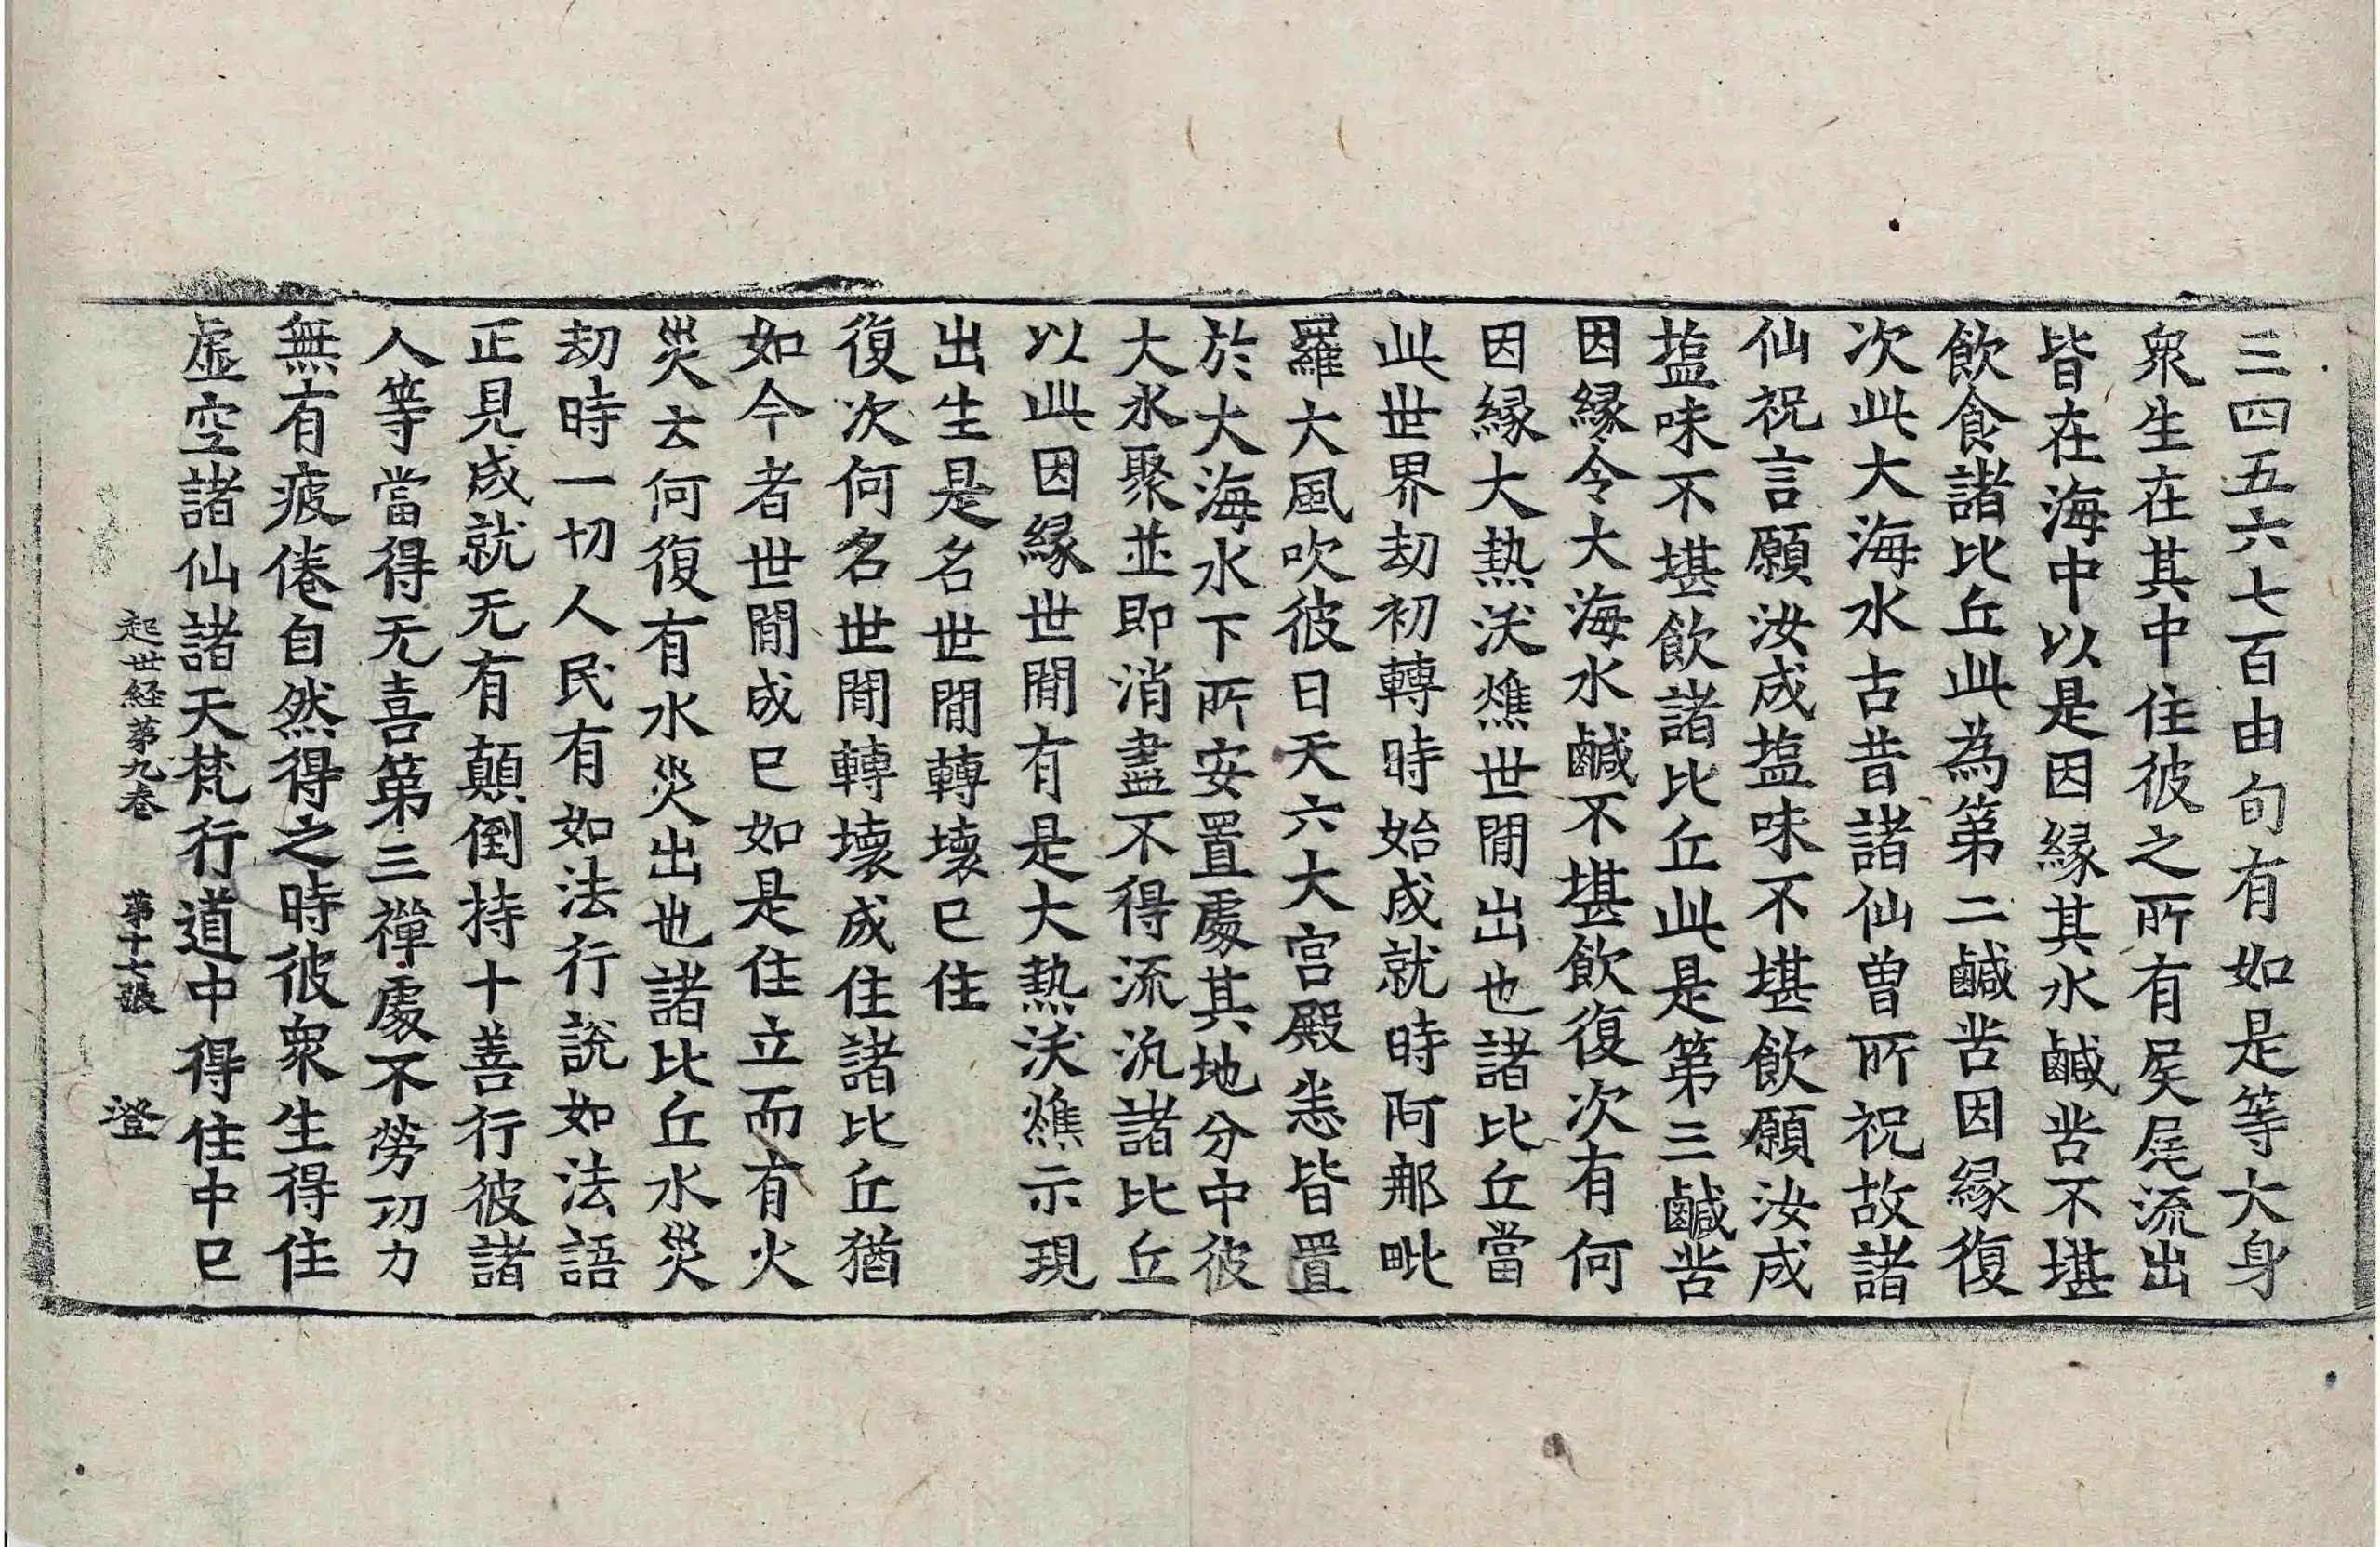 三四五六七百由旬有如是等大身
衆生在其中住彼之所有屎尿流出
皆在海中以是因緣其水鹹苦不堪
飲食諸比丘此為第二鹹苦因緣復
次此大海水古昔諸仙曾所祝故諸
仙祝言願汝成塩味不堪飲願汝成
塩味不堪飲諸比丘此是第三鹹苦
因緣令大海水鹹不堪飲復次有何
因緣大熱沃燋世間出也諸比丘當
此世界劫初轉時始成就時阿那毗
羅大風吹彼日天六大宮殿悉皆置
於大海水下所安置處其地分中彼
大水聚並即消盡不得流汎諸比丘
以此因緣世間有是大熱沃燋示現
出生是名世間轉壞已住
復次何名世間轉壞成住諸比丘猶
如今者世間成已如是住立而有火
災云何復有水災出也諸比丘水災
劫時一切人民有如法行說如法語
正見成就无有顛倒持十善行彼諸
人等當得无喜第三禪處不勞功力
無有疲倦自然得之時彼衆生得住
虛空諸仙諸天梵行道中得住中已
起世経第九卷 第十七張 澄